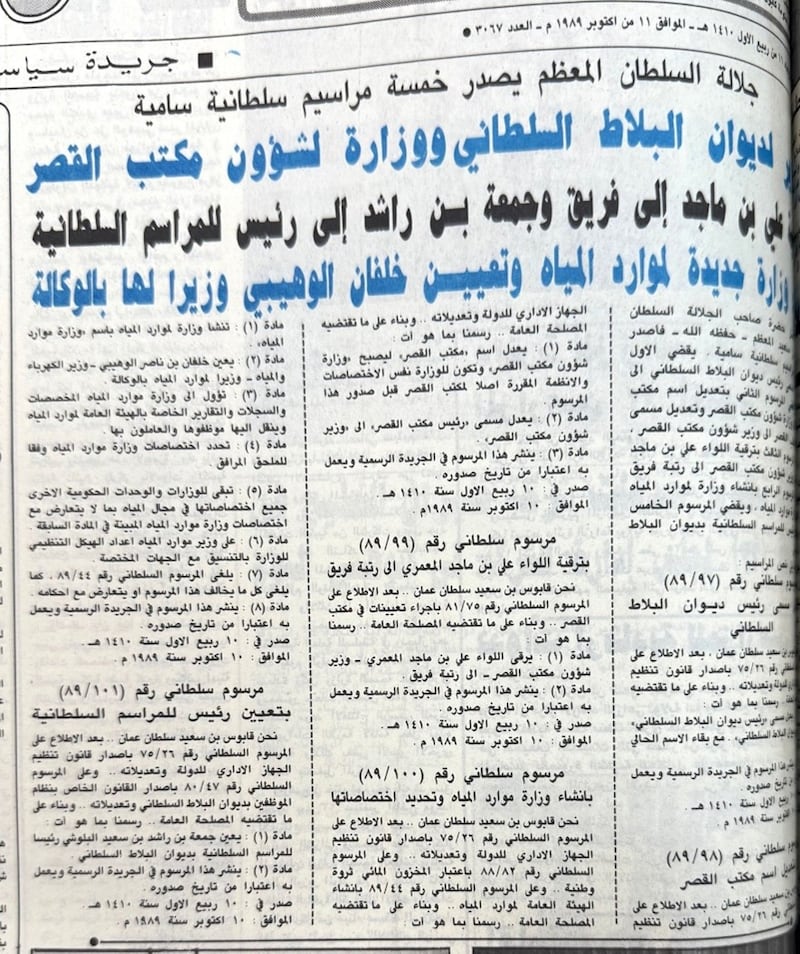 ١١ من ربيع الاول ١٤١٠ هـ ـ الموافق ١١ من أكتوبر ١٩٨٩ م ـ العدد ٣٠٦٧ ●
■ جريدة سياسـ
جلالة السلطان المعظم يصدر خمسة مراسيم سلطانية سامية
لديوان البلاط السلطاني ووزارة لشؤون مكتب القصر
علي بن ماجد إلى فريق وجمعة بن راشد إلى رئيس للمراسم السلطانية
وزارة جديدة لموارد المياه وتعيين خلفان الوهيبي وزيرا لها بالوكالة
حضرة صاحب الجلالة السلطان
المعظم ـ حفظه الله ـ فأصدر
سلطانية سامية . يقضي الاول
رئيس ديوان البلاط السلطاني الى
الرسوم الثاني بتعديل اسم مكتب
شؤون مكتب القصر وتعديل مسمى
القصر الى وزير شؤون مكتب القصر ،
الثالث بترقية اللواء علي بن ماجد
شؤون مكتب القصر الى رتبة فريق
الرابع بانشاء وزارة لموارد المياه
المياه . ويقضي المرسوم الخامس
للمراسم السلطانية بديوان البلاط
نص المراسيم :
سلطاني رقم (٨٩/٩٧)
مسمى رئيس ديوان البلاط
السلطاني
بن سعيد سلطان عمان . بعد الاطلاع على
رقم ٧٥/٢٦ باصدار قانون تنظيم
للدولة وتعديلاته .. وبناء على ما تقتضيه
رسمنا بما هو آت :
مسمى «رئيس ديوان البلاط السلطاني»
البلاط السلطاني» . مع بقاء الاسم الحالي
هذا المرسوم في الجريدة الرسمية ويعمل
تاريخ صدوره .
ربيع الاول سنة ١٤١٠ هـ .
سنة ١٩٨٩ م .
سلطاني رقم (٨٩/٩٨)
اسم مكتب القصر
سلطان عمان .. بعد الاطلاع على
رقم ٧٥/٢٦ باصدار قانون تنظيم
الجهاز الاداري للدولة وتعديلاته .. وبناء على ما تقتضيه
المصلحة العامة .. رسمنا بما هو آت :
مادة (١) : يعدل اسم «مكتب القصر» ليصبح «وزارة
شؤون مكتب القصر» وتكون للوزارة نفس الاختصاصات
والانظمة المقررة اصلا لمكتب القصر قبل صدور هذا
المرسوم
مادة (٢) : يعدل مسمى «رئيس مكتب القصر» الى «وزير
شؤون مكتب القصر» .
مادة (٣) : ينشر هذا المرسوم في الجريدة الرسمية ويعمل
به اعتبارا من تاريخ صدوره .
صدر في : ١٠ ربيع الاول سنة ١٤١٠ هـ .
الموافق : ١٠ اكتوبر سنة ١٩٨٩م .
مرسوم سلطاني رقم (٨٩/٩٩)
بترقية اللواء علي بن ماجد المعمري الى رتبة فريق
نحن قابوس بن سعيد سلطان عمان .. بعد الاطلاع على
المرسوم السلطاني رقم ٨١/٧٥ باجراء تعيينات في مكتب
القصر .. وبناء على ما تقتضيه المصلحة العامة .. رسمنا
بما هو آت :
مادة (١) : يرقى اللواء علي بن ماجد المعمري ـ وزير
شؤون مكتب القصر ـ الى رتبة فريق .
مادة (٢) : ينشر هذا المرسوم في الجريدة الرسمية ويعمل
به اعتبارا من تاريخ صدوره .
صدر في : ١٠ ربيع الاول سنة ١٤١٠ هـ .
الموافق : ١٠ اكتوبر سنة ١٩٨٩ م .
مرسوم سلطاني رقم (٨٩/١٠٠)
بانشاء وزارة موارد المياه وتحديد اختصاصاتها
نحن قابوس بن سعيد سلطان عمان .. بعد الاطلاع على
المرسوم السلطاني رقم ٧٥/٢٦ باصدار قانون تنظيم
الجهاز الاداري للدولة وتعديلاته .. وعلى المرسوم
السلطاني رقم ٨٨/٨٢ باعتبار المخزون المائي ثروة
وطنية .. وعلى المرسوم السلطاني رقم ٨٩/٤٤ بانشاء
الهيئة العامة لموارد المياه .. وبناء على ما تقتضيه
المصلحة العامة .. رسمنا بما هو آت :
مادة (١) : تنشأ وزارة لموارد المياه باسم «وزارة موارد
المياه» .
مادة (٢) : يعين خلفان بن ناصر الوهيبي ـ وزير الكهرباء
والمياه ـ وزيرا لموارد المياه بالوكالة .
مادة (٣) : تؤول الى وزارة موارد المياه المخصصات
والسجلات والتقارير الخاصة بالهيئة العامة لموارد المياه
وينقل اليها موظفوها والعاملون بها .
مادة (٤) : تحدد اختصاصات وزارة موارد المياه وفقا
للملحق المرافق .
مادة (٥) : تبقى للوزارات والوحدات الحكومية الاخرى
جميع اختصاصاتها في مجال المياه بما لا يتعارض مع
اختصاصات وزارة موارد المياه المبينة في المادة السابقة .
مادة (٦) : على وزير موارد المياه اعداد الهيكل التنظيمي
للوزارة بالتنسيق مع الجهات المختصة .
مادة (٧) : يلغى المرسوم السلطاني رقم ٨٩/٤٤ . كما
يلغى كل ما يخالف هذا المرسوم او يتعارض مع احكامه .
مادة (٨) : ينشر هذا المرسوم في الجريدة الرسمية ويعمل
به اعتبارا من تاريخ صدوره .
صدر في : ١٠ ربيع الاول سنة ١٤١٠ هـ .
الموافق : ١٠ اكتوبر سنة ١٩٨٩ م .
مرسوم سلطاني رقم (٨٩/١٠١)
بتعيين رئيس للمراسم السلطانية
نحن قابوس بن سعيد سلطان عمان .. بعد الاطلاع على
المرسوم السلطاني رقم ٧٥/٢٦ باصدار قانون تنظيم
الجهاز الاداري للدولة وتعديلاته .. وعلى المرسوم
السلطاني رقم ٨٠/٤٧ باصدار القانون الخاص بنظام
الموظفين بديوان البلاط السلطاني وتعديلاته .. وبناء على
ما تقتضيه المصلحة العامة .. رسمنا بما هو آت :
مادة (١) : يعين جمعة بن راشد بن سعيد البلوشي رئيسا
للمراسم السلطانية بديوان البلاط السلطاني .
مادة (٢) : ينشر هذا المرسوم في الجريدة الرسمية ويعمل
به اعتبارا من تاريخ صدوره .
صدر في : ١٠ ربيع الاول سنة ١٤١٠ هـ .
الموافق : ١٠ اكتوبر سنة ١٩٨٩ م .